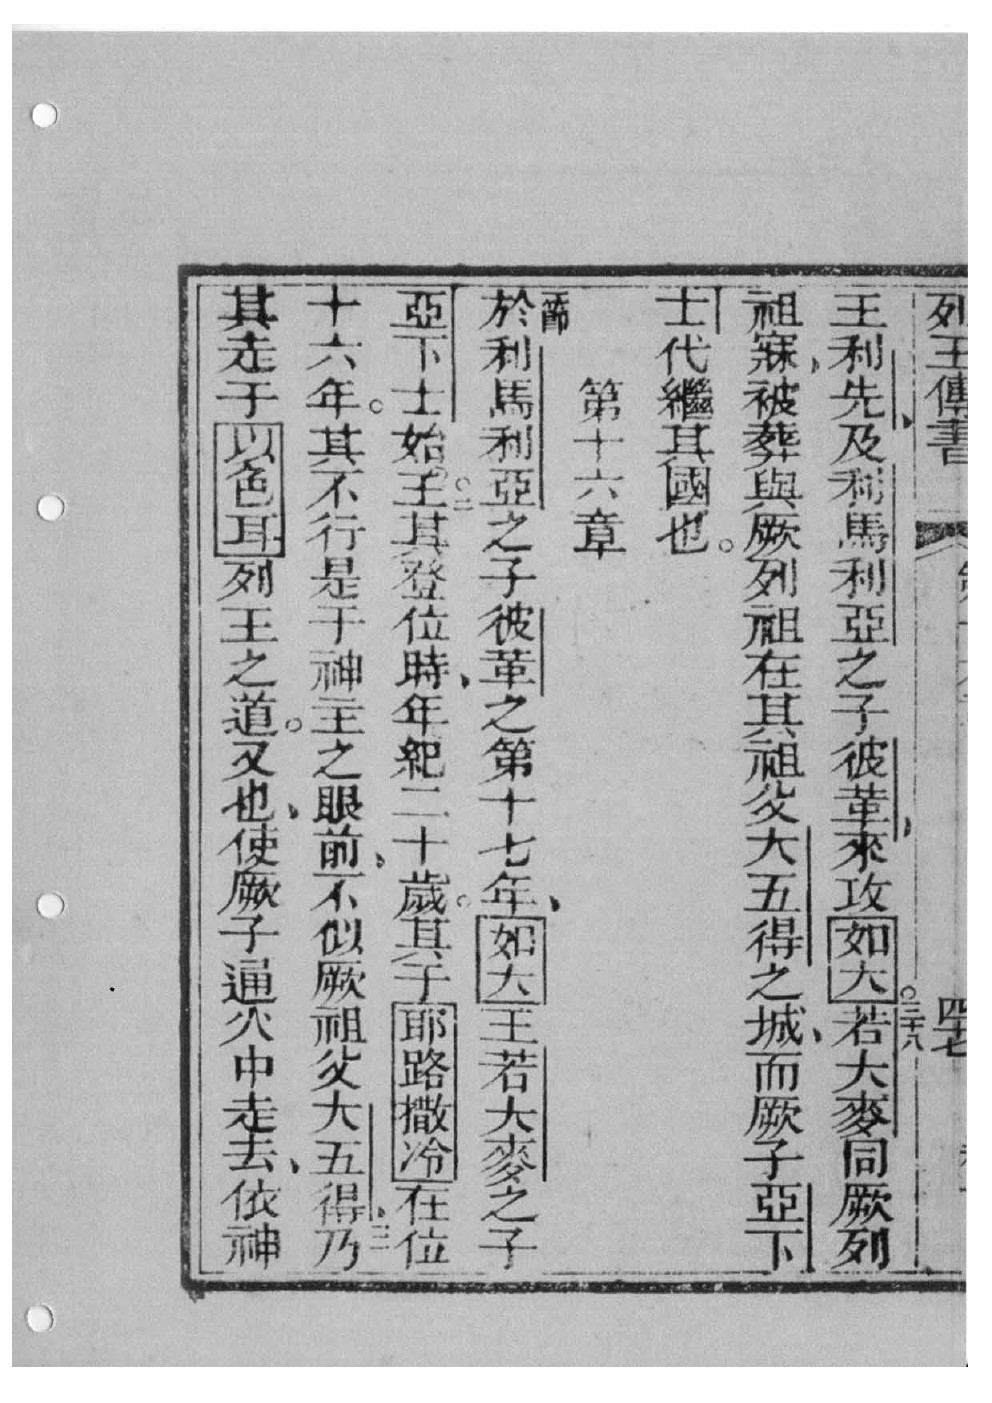 列王傳書
四七
王利先、及利馬利亞之子彼革、來攻如大。三十八若大麥同厥列
祖寐、被葬與厥列祖在其祖父大五得之城、而厥子亞下
士代繼其國也。
第十六章
一節於利馬利亞之子彼革之第十七年、如大王若大麥之子
亞下士始王。○二其登位時、年紀二十歲。其于耶路撒冷在位
十六年。其不行是于神主之眼前、不似厥祖父大五得、三乃
其走于以色耳列王之道。又也、使厥子通火中走去、依神